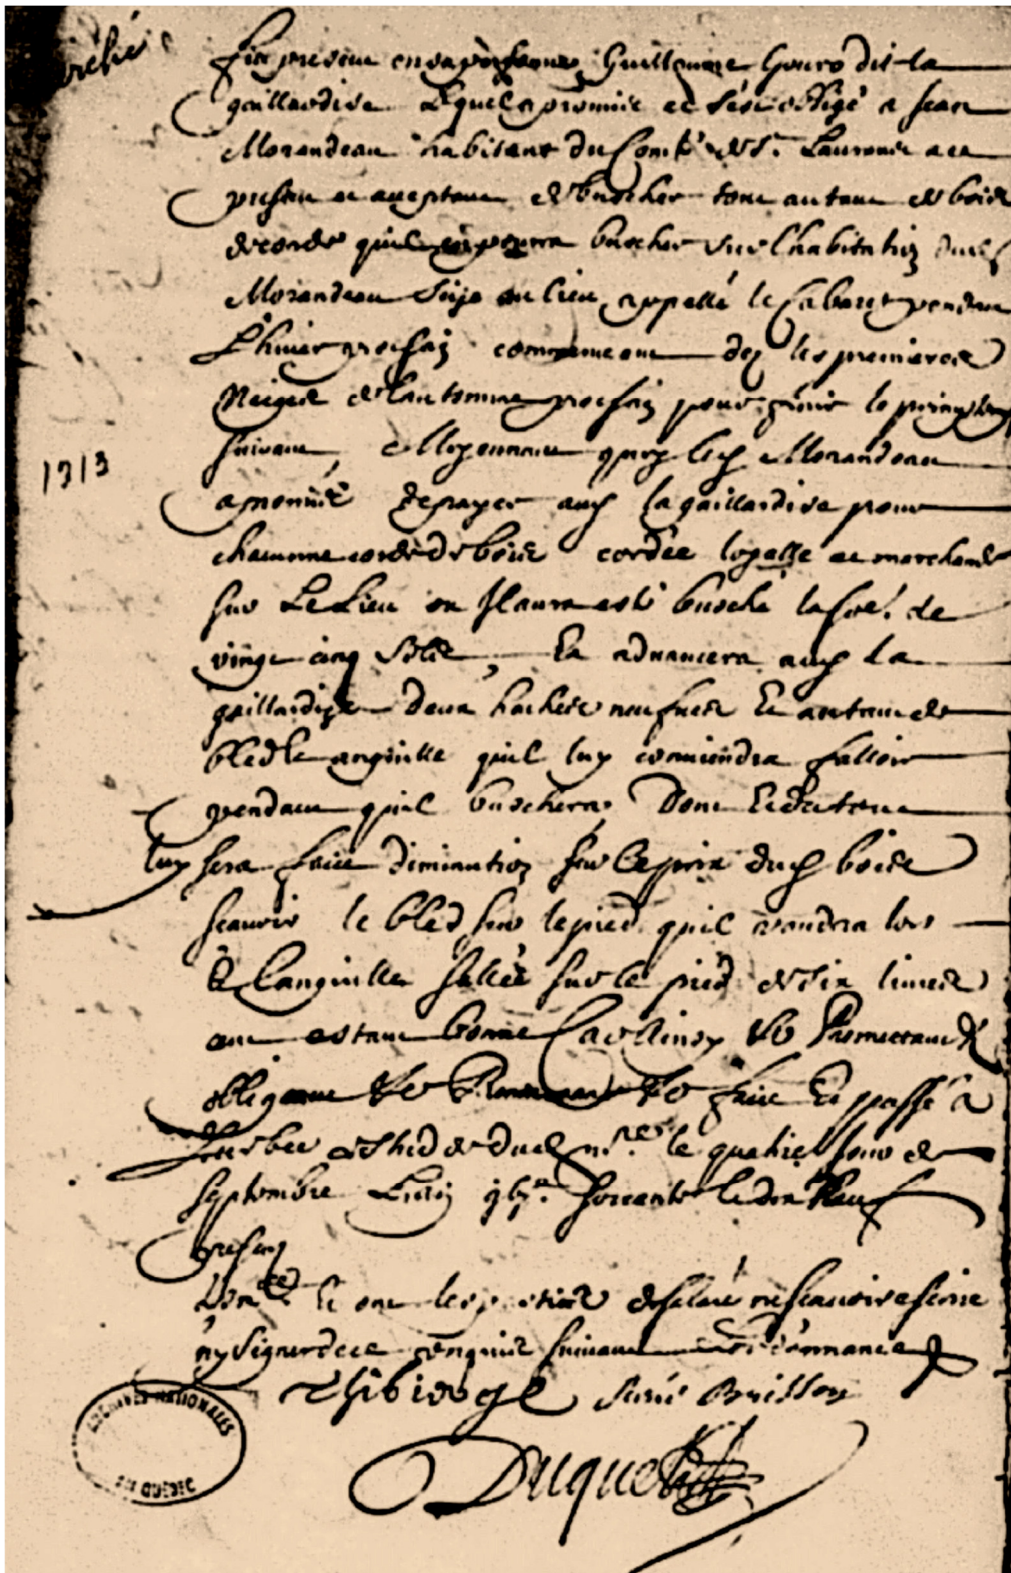 Marché
Fut present en sa personne Guillaume Gouro dit la
gaillardise Lequel a promis et s'est obligé a Jean
Morandeau habitant du Comté de St. Laurens a ce
present et acceptant de buscher tout autant de bois
de corde quil en pourra buscher sur l'habitation dud
Morandeau size au lieu appellé le Cabaret pendant
L'hiver prochain commencant dez les premieres
Neiges de l'automne prochain pour finir le printemps
suivant, Moyennant quoy led Morandeau
1313
a promis de payer aud la gaillardise pour
chacunne corde de bois cordée loyalle et marchande
sur Le Lieu ou Il aura esté busché la so͞e. de
vingt cinq solz, Et advancera aud la
gaillardize deux haches neufves Et autant de
bled Et anguille quil luy conviendra falloir
pendant quil buschera, Dont Et du tout
luy sera faict diminution sur le prix dud bois
scavoir le bled sur le pied quil vaudra lors
& L'anguille sallée sur le pied de six livres
Car Ainsy &c Promettant &c
obligeant &c Renonceant &c faict Et passé a
Quebec Estude dud no.re le quatrie Jour de
septembre L'an gbjc. soixante
presence
et ont les parties declaré ne scavoir escrire
ny signer de ce enquis suivant L'ordonnance
Thibierge René Brisson
Duquet
ARCHIVES NATIONALES
DU QUÉBEC